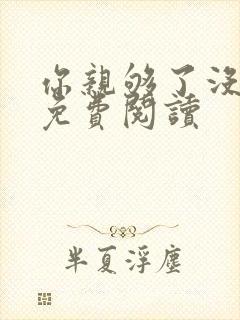 你親够了沒
免費閱讀
半夏浮塵